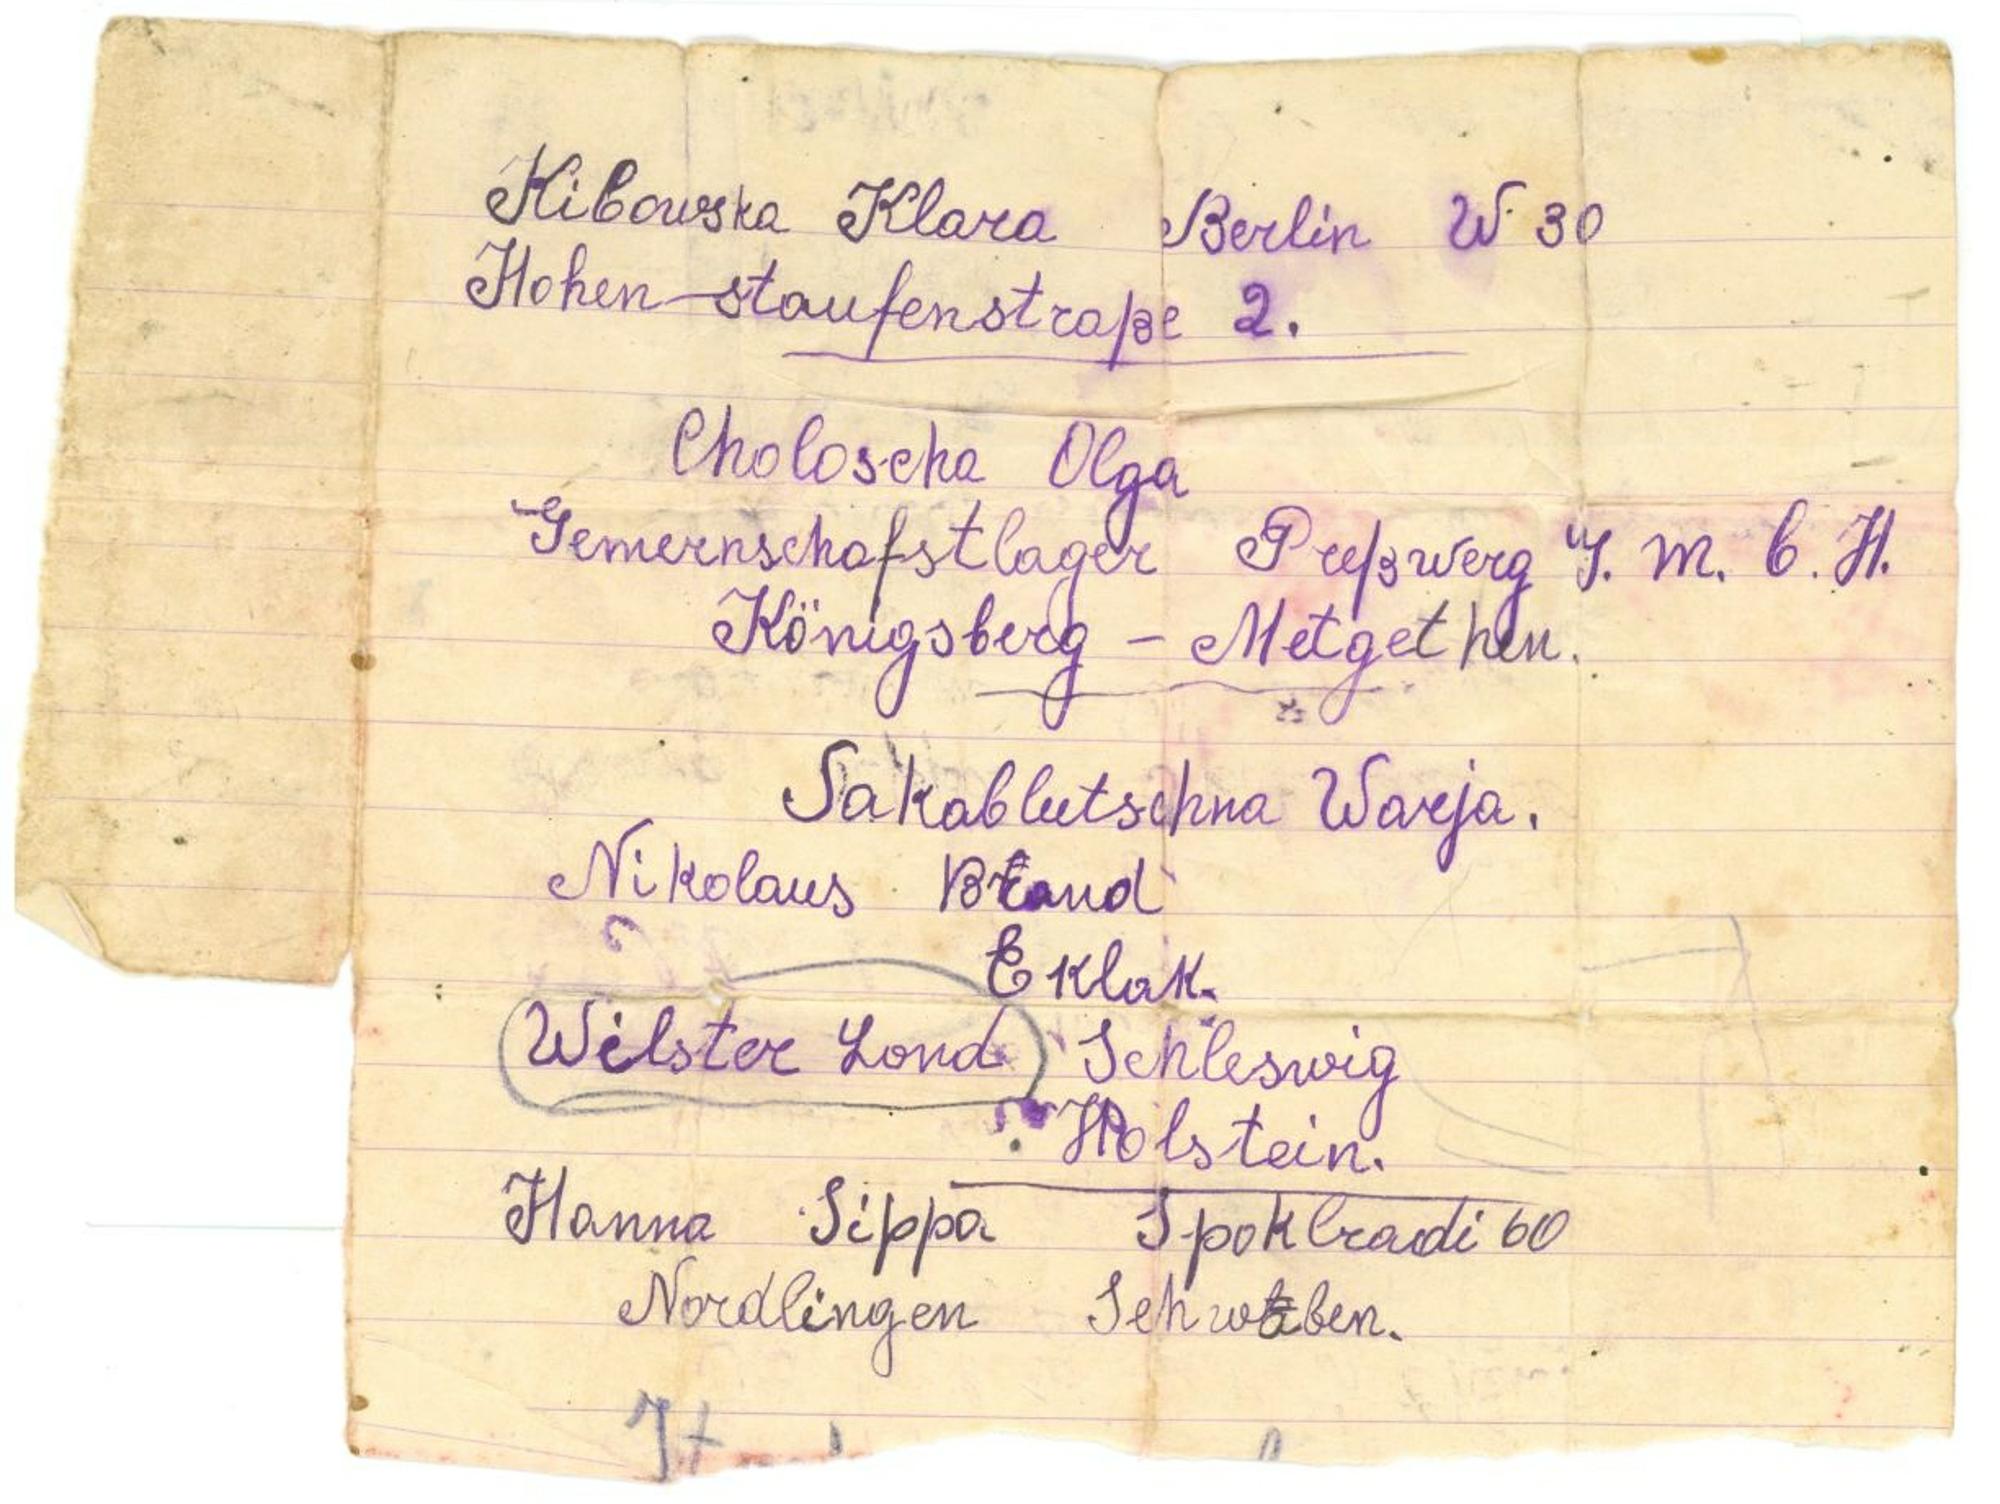 Kibowska Klara Berlin W 30
Hohen-staufenstraße 2.
Choloscha Olga
Gemernschafstlager Preßwerg G. m. b. H.
Königsberg - Metgethen.
Sakablutschna Warja.
Nikolaus Brand
Eklak.
Wilster Land Schleswig
Holstein.
Hanna Sippa Spoklradi 60
Nordlingen Schwaben.